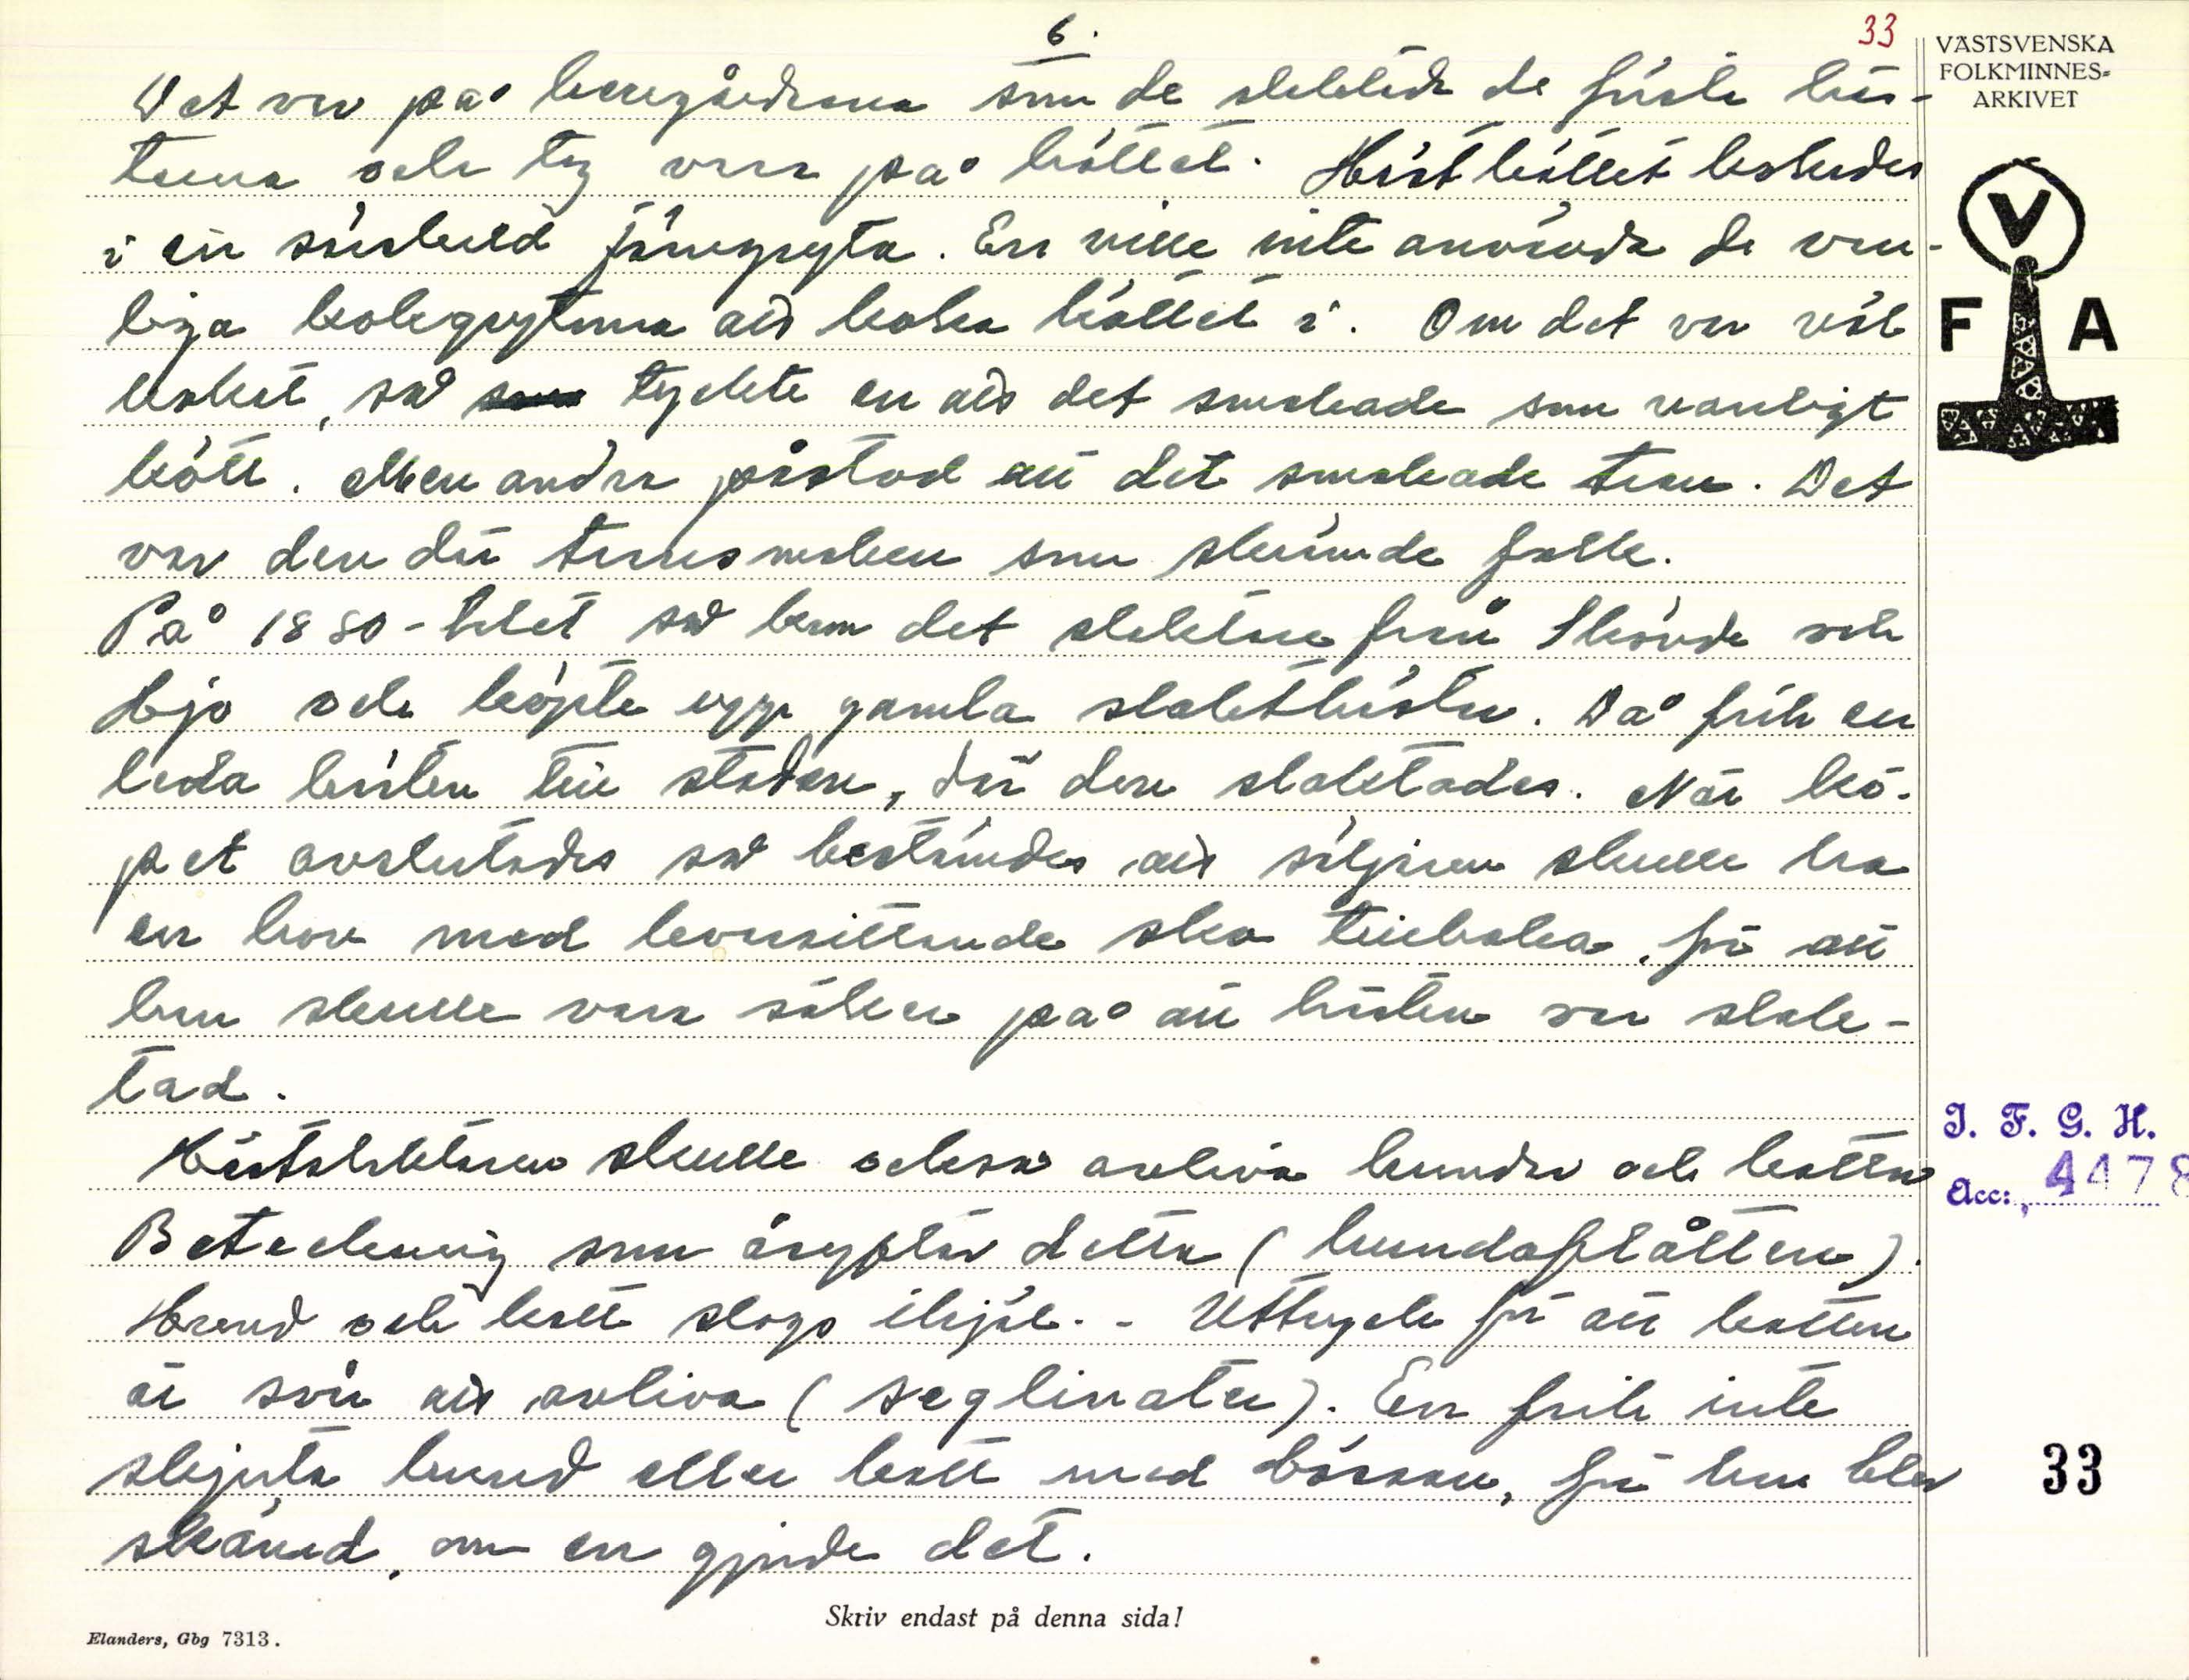 6.
33
Det var på herregårdarna som de slaktade de första häs-
tarna och tog vara på köttet. Hästköttet kokades
i en särskild järngryta. En ville inte använda de van-
liga kokegrytorna att koka köttet i. Om det var väl
kokat, så tyckte en att det smakade som vanligt
kött. Men andra påstod att det smakade tran. Det
var den där transmaken som skrämde folk.
På 1880-talet så kom det slaktare från Skövde och
Hjo och köpte upp gamla slakthästar. Då fick en
leda hästen till staden, där den slaktades. När kö-
pet avslutades så bestämdes att säljaren skulle ha
en hov med kvarsittande sko tillbaka, för att
han skulle vara säker på att hästen var slak-
tad.
Hästslaktaren skulle också avliva hundar och kattor
Beteckning som åsyftar detta (hundaflåttare).
Hund och katt slogs ihjäl. - Uttryck för att katten
är svår att avliva (seglivater). En fick inte
skjuta hund eller katt med bössan, för han blev
skämd, om en gjorde det.
Skriv endast på denna sida!
Elanders, Gbg 7313.
VÄSTSVENSKA
FOLKMINNES-
ARKIVET
V
F A
I. F. G. H.
Acc: 4478
33